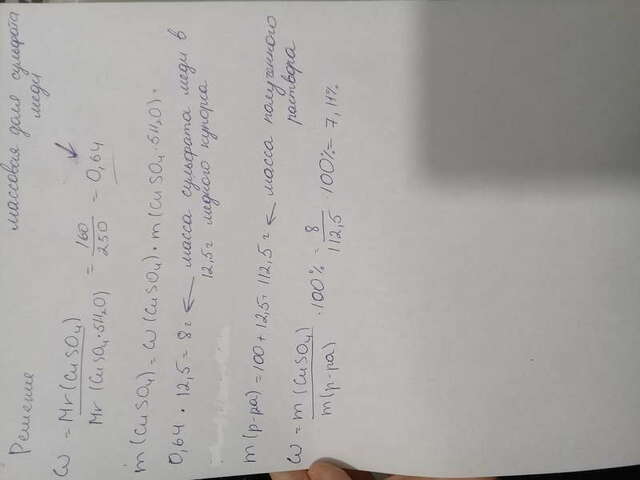 Решение
массовая доля сульфата
меди
ω = Mr(CuSO₄) / Mr(CuSO₄·5H₂O) = 160 / 250 = 0,64
m(CuSO₄) = ω(CuSO₄) · m(CuSO₄·5H₂O) =
0,64 · 12,5 = 8г ← масса сульфата меди в
12,5г медного купорса
m(р-ра) = 100 + 12,5 = 112,5г ← масса полученного
раствора
ω = m(CuSO₄) / m(р-ра) · 100% = 8 / 112,5 · 100% = 7,11%